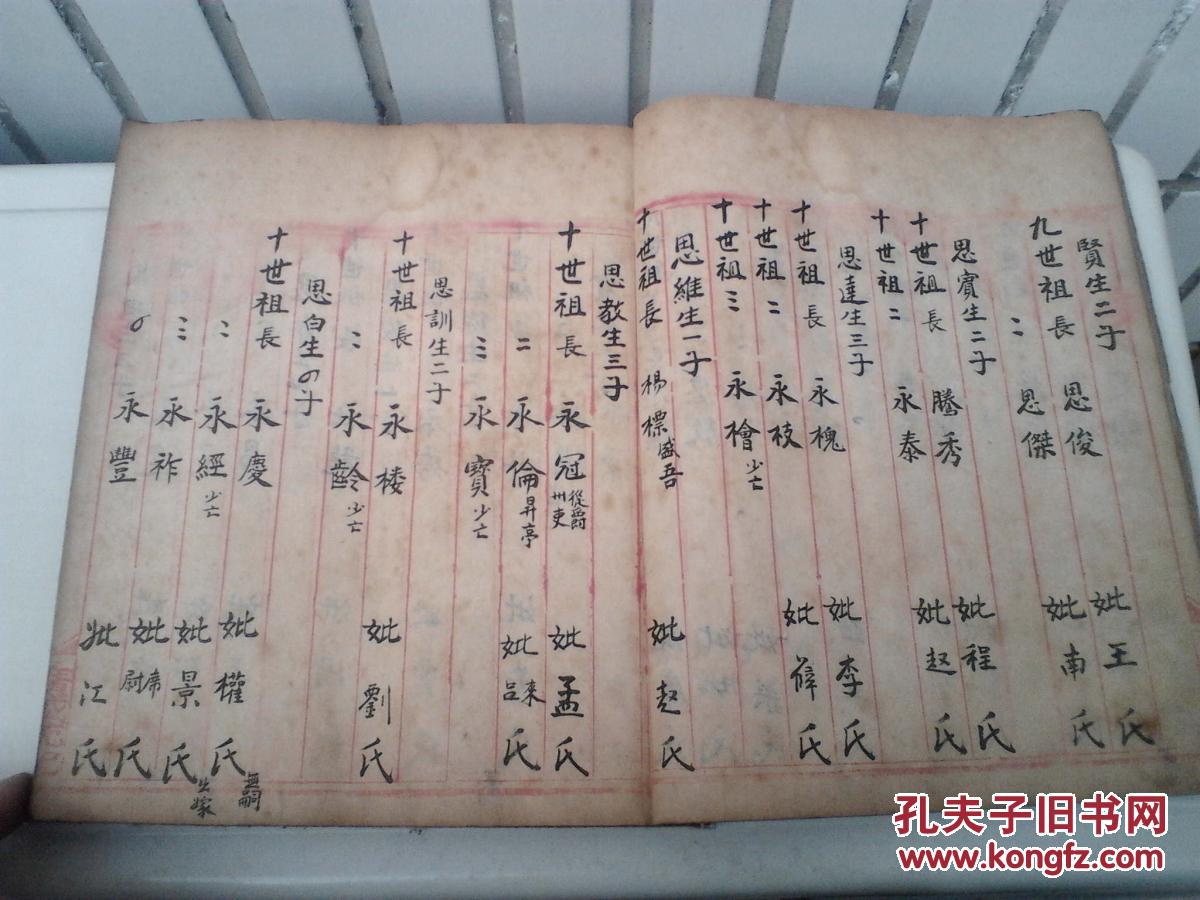 賢生二子
九世祖長 思俊 妣王氏
二 思傑 妣南氏
思賓生二子
十世祖長 騰秀 妣程氏
十世祖二 永泰 妣赵氏
思達生三子
十世祖長 永槐 妣李氏
十世祖二 永枝 妣薛氏
十世祖三 永檜 少亡
思維生一子
十世祖長 楊標 盛吾 妣赵氏
思教生三子
十世祖長 永冠 從爵 州吏 妣孟氏
二 永倫 昇亭 妣来 吕氏
三 永寶 少亡
思訓生二子
十世祖長 永棱 妣劉氏
二 永齡 少亡
思白生の子
十世祖長 永慶 妣權氏 無嗣
二 永經 少亡 妣景氏 出嫁
三 永祚 妣席 尉氏
の 永豐 妣江氏
孔夫子旧书网
www.kongfz.com